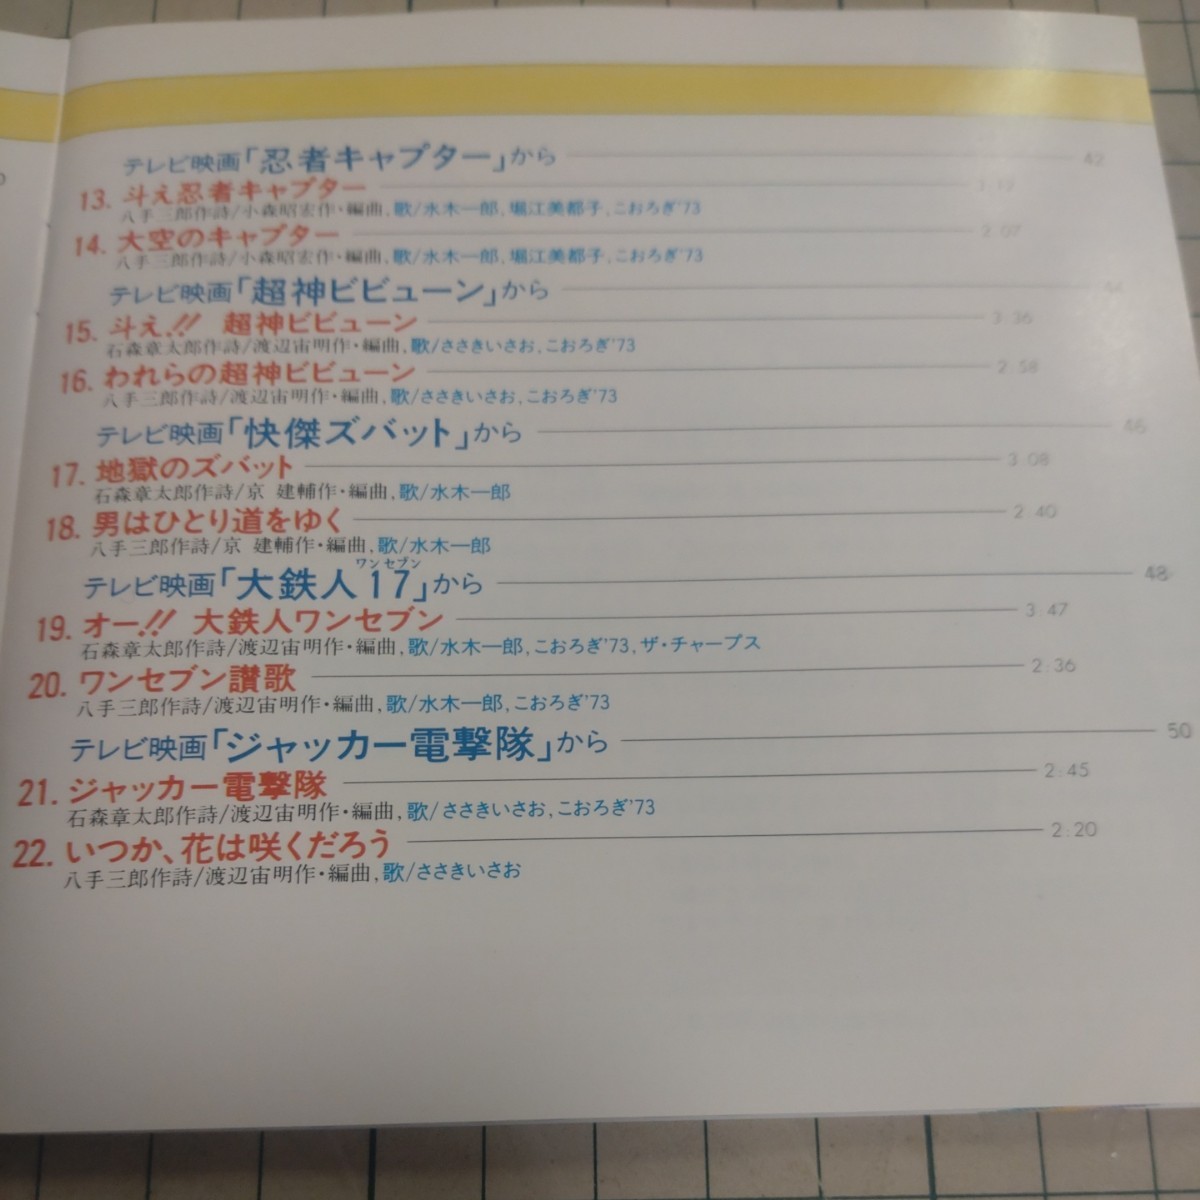 テレビ映画「忍者キャプター」から 42
13. 斗え忍者キャプター 3:12
八手三郎作詩/小森昭宏作・編曲, 歌/水木一郎, 堀江美都子, こおろぎ'73
14. 大空のキャプター 2:07
八手三郎作詩/小森昭宏作・編曲, 歌/水木一郎, 堀江美都子, こおろぎ'73
テレビ映画「超神ビビューン」から 44
15. 斗え!! 超神ビビューン 3:36
石森章太郎作詩/渡辺宙明作・編曲, 歌/ささきいさお, こおろぎ'73
16. われらの超神ビビューン 2:58
八手三郎作詩/渡辺宙明作・編曲, 歌/ささきいさお, こおろぎ'73
テレビ映画「快傑ズバット」から 46
17. 地獄のズバット 3:08
石森章太郎作詩/京 建輔作・編曲, 歌/水木一郎
18. 男はひとり道をゆく 2:40
八手三郎作詩/京 建輔作・編曲, 歌/水木一郎
ワンセブン
テレビ映画「大鉄人17」から 48
19. オー!! 大鉄人ワンセブン 3:47
石森章太郎作詩/渡辺宙明作・編曲, 歌/水木一郎, こおろぎ'73, ザ・チャープス
20. ワンセブン讃歌 2:36
八手三郎作詩/渡辺宙明作・編曲, 歌/水木一郎, こおろぎ'73
テレビ映画「ジャッカー電撃隊」から 50
21. ジャッカー電撃隊 2:45
石森章太郎作詩/渡辺宙明作・編曲, 歌/ささきいさお, こおろぎ'73
22. いつか、花は咲くだろう 2:20
八手三郎作詩/渡辺宙明作・編曲, 歌/ささきいさお